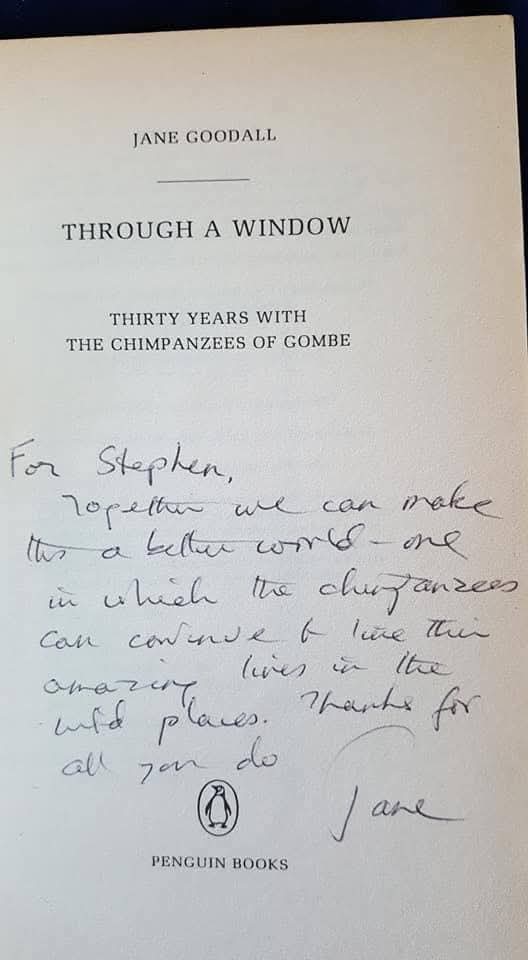 JANE GOODALL
THROUGH A WINDOW
THIRTY YEARS WITH
THE CHIMPANZEES OF GOMBE
For Stephen,
Together we can make
this a better world – one
in which the chimpanzees
can continue to live their
amazing lives in the
wild places. Thanks for
all you do
Jane
PENGUIN BOOKS